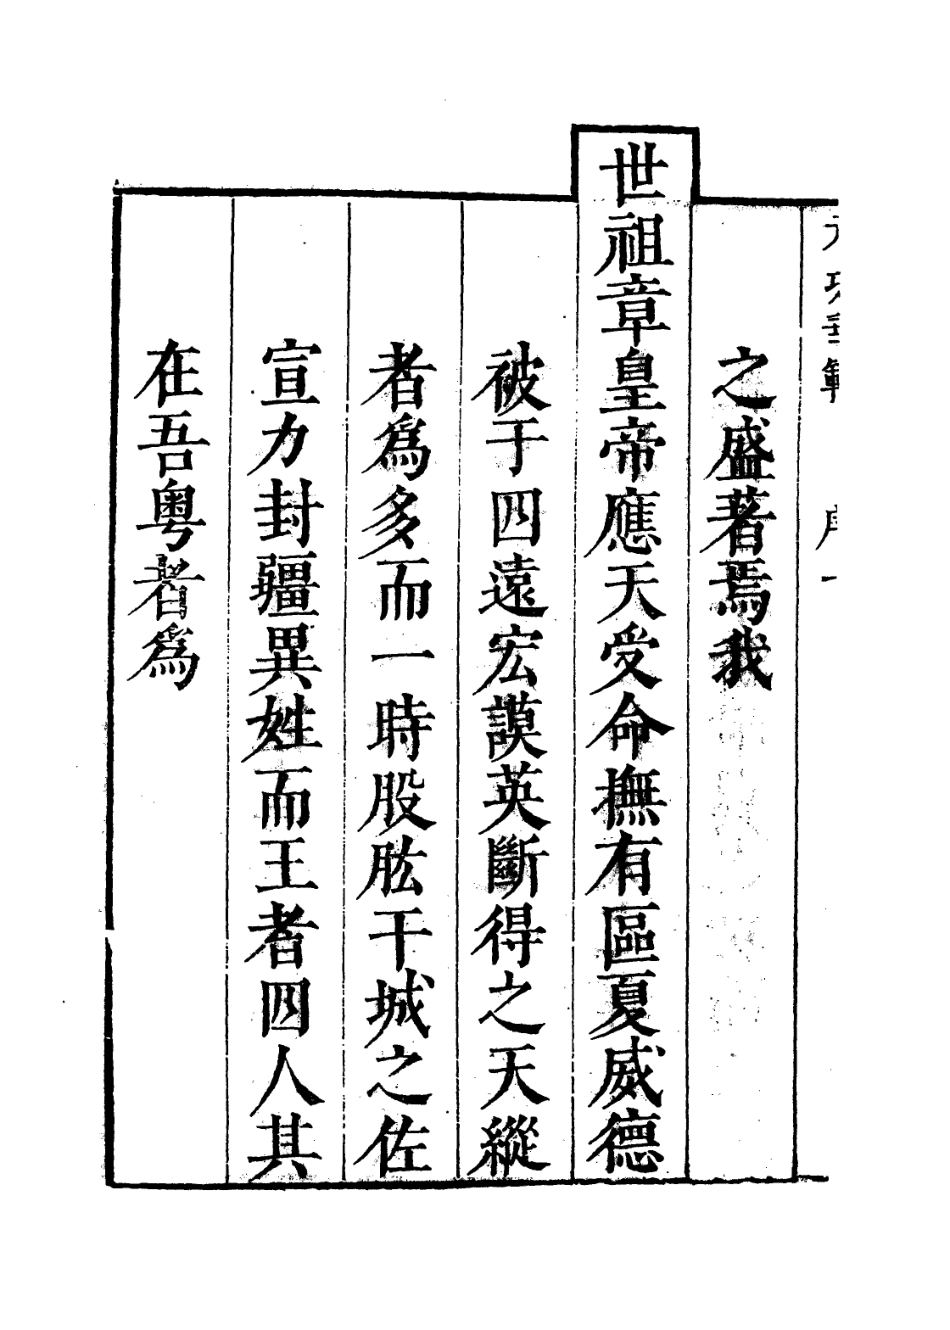 之盛著焉我
世祖章皇帝應天受命撫有區夏威德
被于四遠宏謨英斷得之天縱
者為多而一時股肱干城之佐
宣力封疆異姓而王者四人其
在吾粤者為